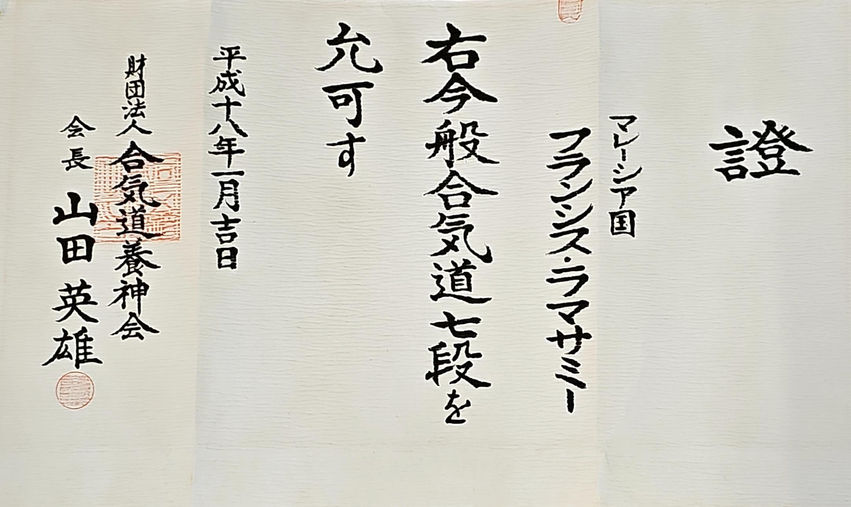 證
マレーシア国
フランシス・ラマサミー
右今般合気道七段を
允可す
平成十八年一月吉日
財団法人合気道養神会
会長 山田英雄